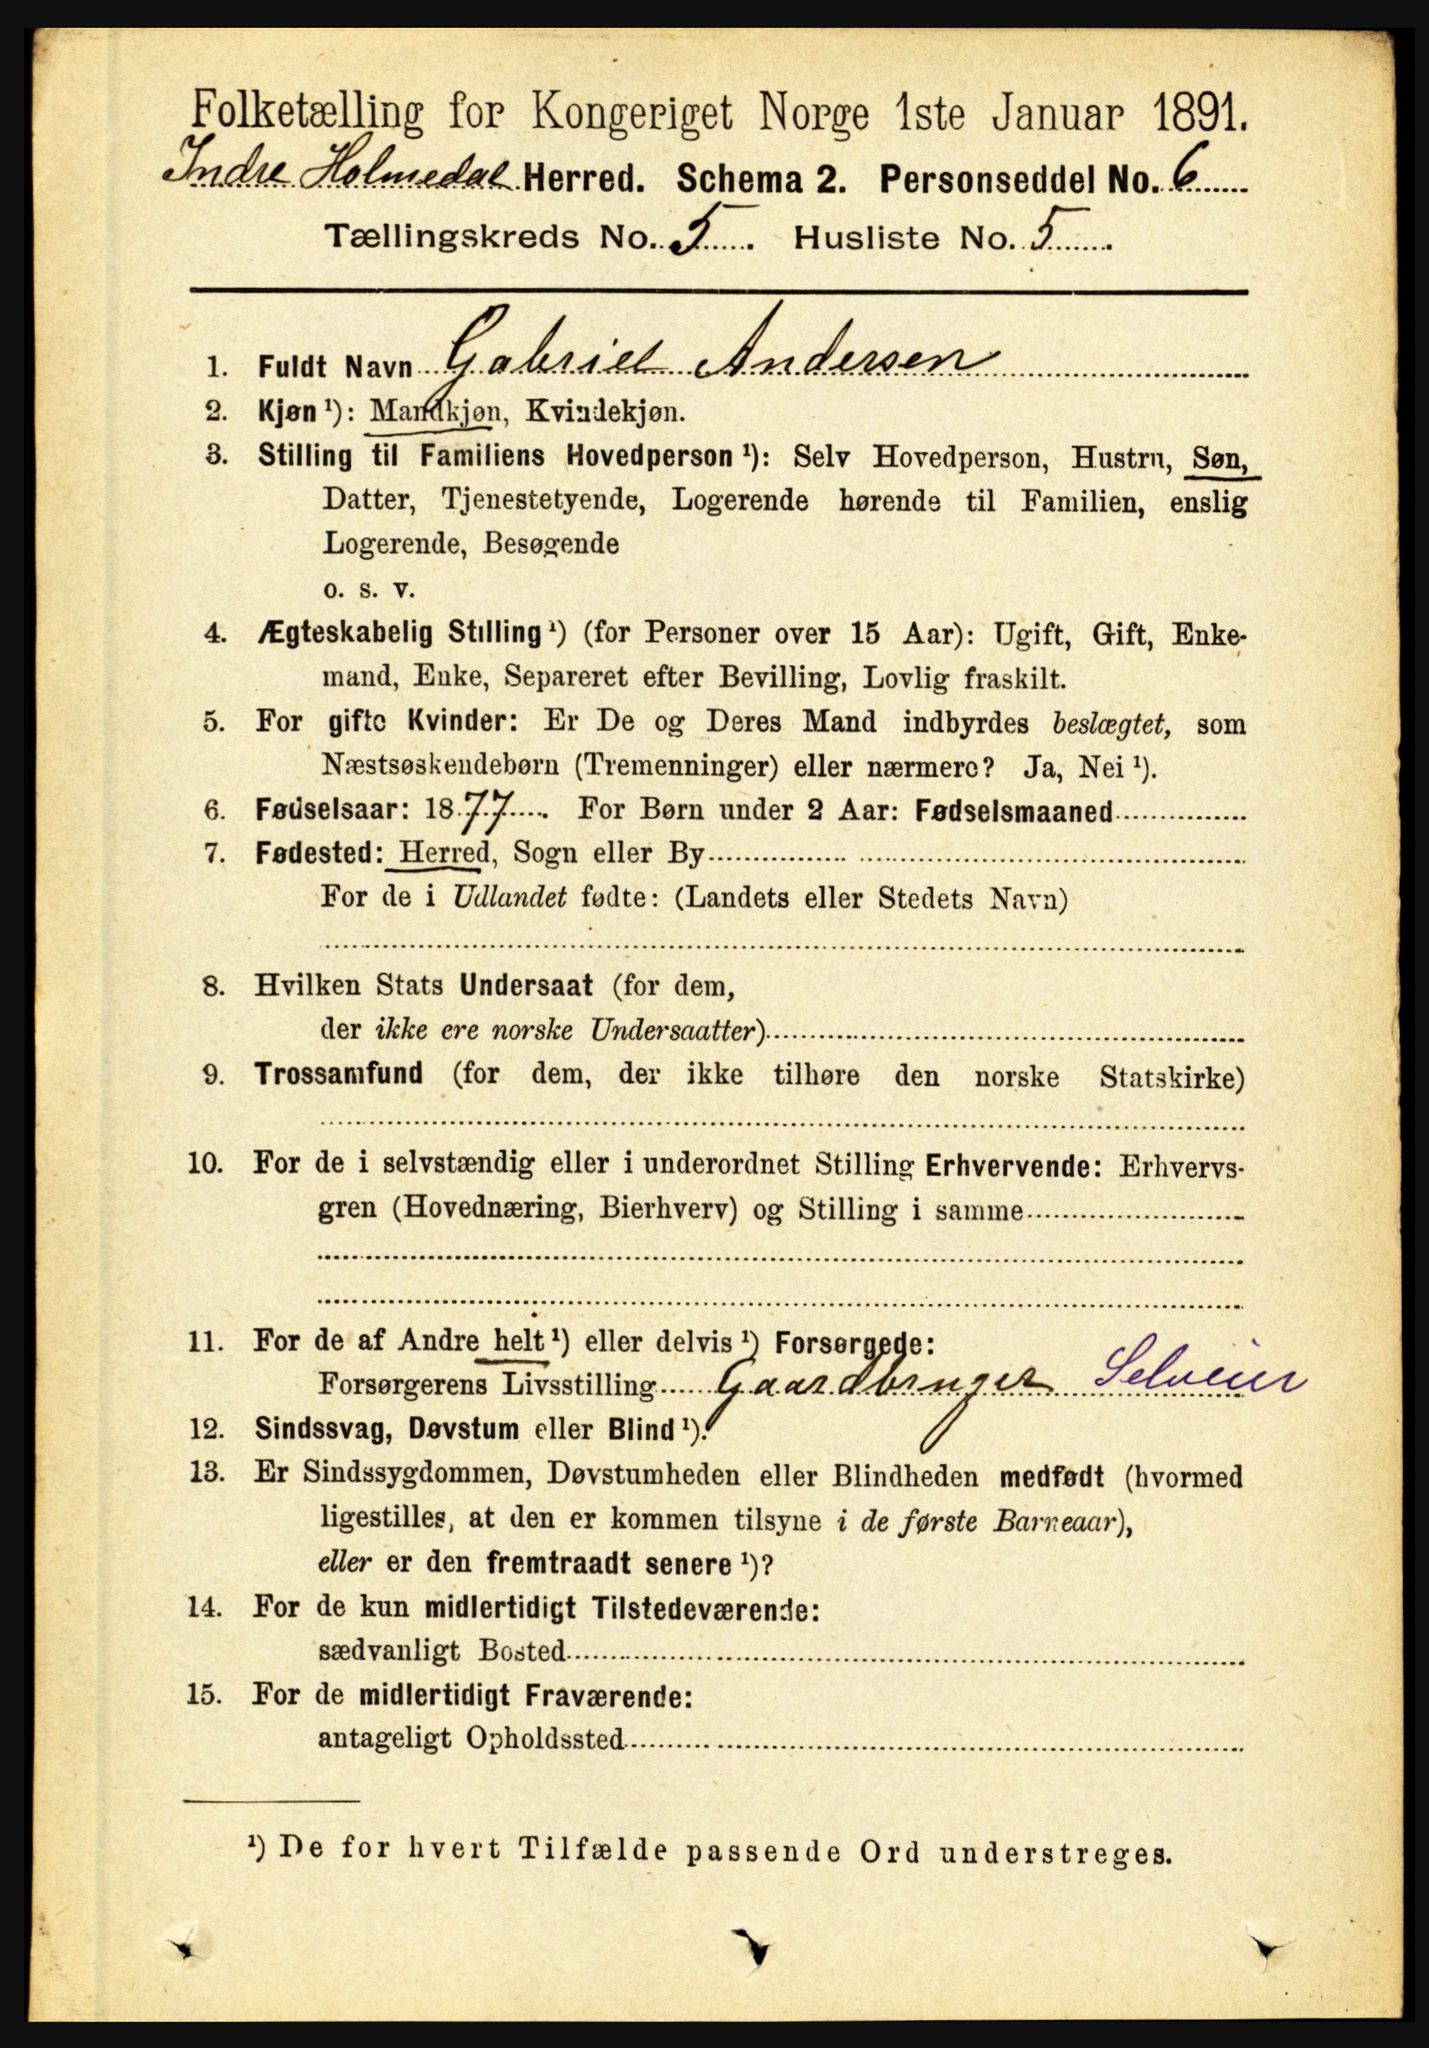 Folketælling for Kongeriget Norge 1ste Januar 1891.
Indre Holmedal Herred. Schema 2. Personseddel No. 6
Tællingskreds No. 5. Husliste No. 5.
1. Fuldt Navn Gabriel Andersen
2. Kjøn ¹): Mandkjøn, Kvindekjøn.
3. Stilling til Familiens Hovedperson ¹): Selv Hovedperson, Hustru, Søn,
Datter, Tjenestetyende, Logerende hørende til Familien, enslig
Logerende, Besøgende
o. s. v.
4. Ægteskabelig Stilling ¹) (for Personer over 15 Aar): Ugift, Gift, Enke-
mand, Enke, Separeret efter Bevilling, Lovlig fraskilt.
5. For gifte Kvinder: Er De og Deres Mand indbyrdes beslægtet, som
Næstsøskendebørn (Tremenninger) eller nærmere? Ja, Nei ¹).
6. Fødselsaar: 1877. For Børn under 2 Aar: Fødselsmaaned
7. Fødested: Herred, Sogn eller By
For de i Udlandet fødte: (Landets eller Stedets Navn)
8. Hvilken Stats Undersaat (for dem,
der ikke ere norske Undersaatter)
9. Trossamfund (for dem, der ikke tilhøre den norske Statskirke)
10. For de i selvstændig eller i underordnet Stilling Erhvervende: Erhvervs-
gren (Hovednæring, Bierhverv) og Stilling i samme
11. For de af Andre helt ¹) eller delvis ¹) Forsørgede:
Forsørgerens Livsstilling Gaardbruger Selveier
12. Sindssvag, Døvstum eller Blind ¹).
13. Er Sindssygdommen, Døvstumheden eller Blindheden medfødt (hvormed
ligestilles, at den er kommen tilsyne i de første Barneaar),
eller er den fremtraadt senere ¹)?
14. For de kun midlertidigt Tilstedeværende:
sædvanligt Bosted
15. For de midlertidigt Fraværende:
antageligt Opholdssted
¹) De for hvert Tilfælde passende Ord understreges.